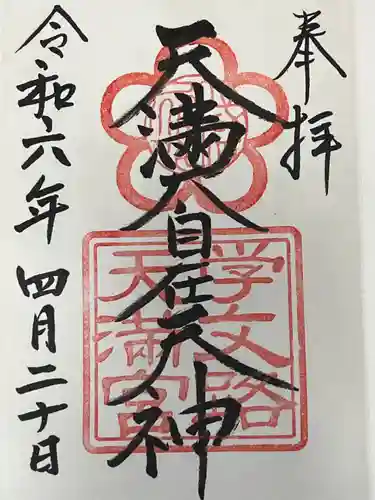 奉拝
天満大自在天神
学文路
天満宮
令和六年四月二十日